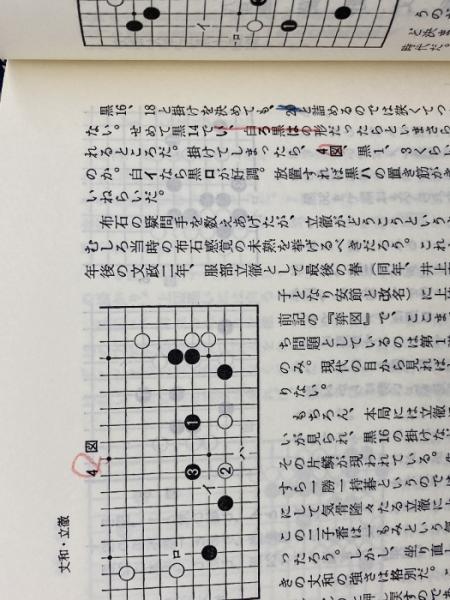 イ
ロ
黒16、18と掛けを決めても、20と詰めるのでは狭くてつ
ない。せめて黒14でい、白ろ黒はの形だったらといまさら
れるところだ。掛けてしまったら、4図、黒1、3ぐらい
のか。白イなら黒ロが好調。放置すれば黒ハの置き筋がき
いねらいだ。
布石の疑問手を数えあげたが、立徹がどうこうという
むしろ当時の布石感覚の未熟を挙げるべきだろう。これ
年後の文政二年、服部立徹として最後の春（同年、井上
子となり安節と改名）に上
前記の『弈図』で、ここま
ち問題としているのは第1
のみ。現代の目から見れば
りない。
もちろん、本局には立徹
いが見られ、黒16の掛けな
その片鱗が現われている。
すら一勝一持碁というので
にして気骨隆々たる立徹に
この二子番は一もみという
ったろう。しかし、坐り直
きの丈和の強さは格別だ。
4図
丈和・立徹
1
2
3
イ
ロ
ハ